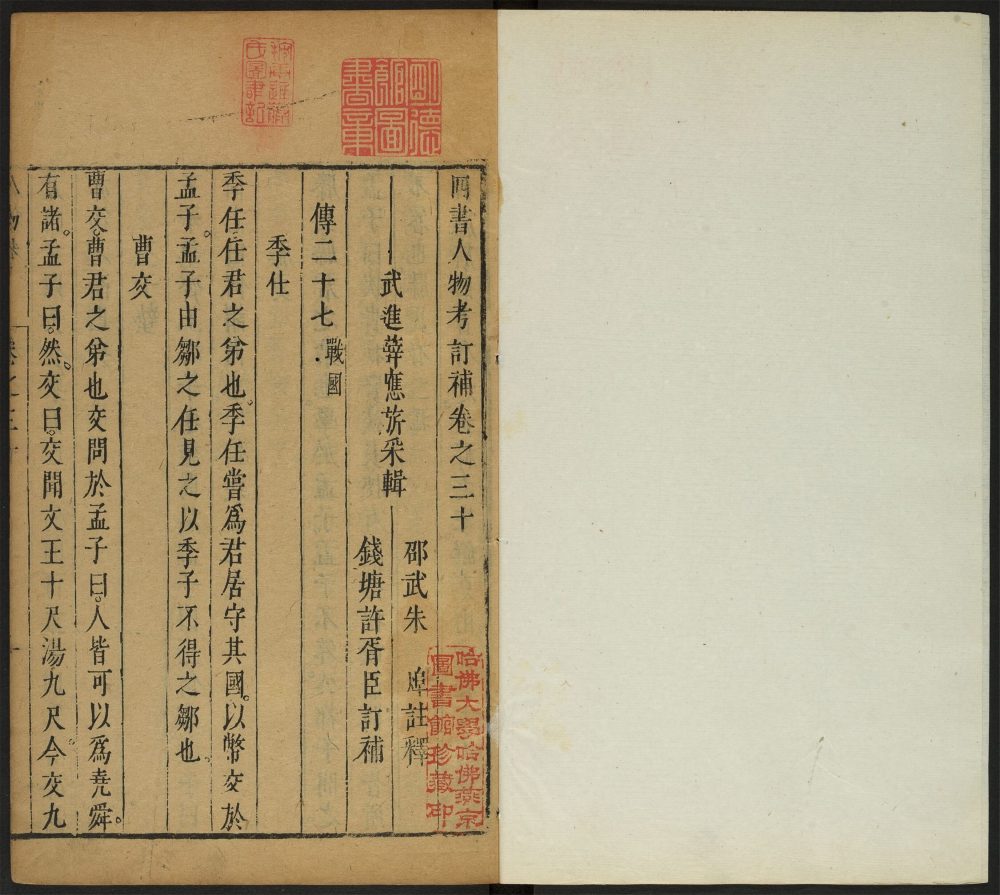 四書人物考訂補卷之三十
武進薛應旂采輯
邵武朱 焯註釋
錢塘許胥臣訂補
傳二十七 戰國
季仕
季任任君之弟也。季任嘗爲君居守其國。以幣交於
孟子。孟子由鄒之任見之以季子不得之鄒也。
曹交
曹交。曹君之弟也交問於孟子曰。人皆可以爲堯舜。
有諸。孟子曰。然。交曰。交聞文王十尺湯九尺今交九
明德館圖書章
哈佛大學哈佛燕京
圖書館珍藏印